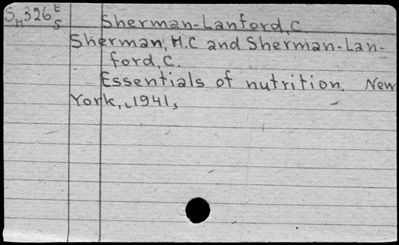 SH326ES Sherman-Lanford, C.
Sherman, H.C and Sherman-Lan-
ford, C.
Essentials of nutrition. New
York, 1941,